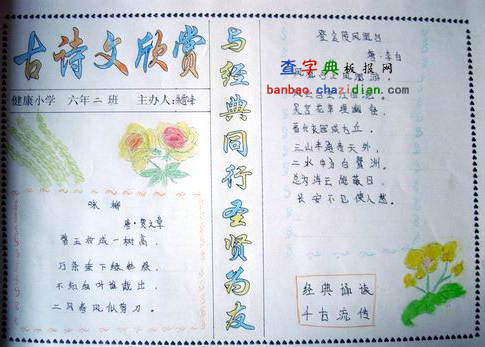 古诗文欣赏
健康小学 六年二班 主办人:
咏柳
唐·贺
碧玉妆成一树高,
万条垂下绿丝绦。
不知细叶谁裁出
二月春风似剪刀。
与经典同行圣贤为友
登金陵凤凰台
唐·李白
查字典板报网
banbao.chazidian.com
吴宫花草埋幽径,
晋代衣冠成古丘。
三山半落青天外,
二水中分白鹭洲。
总为浮云能蔽日,
长安不见使人愁。
经典诵读
千古流传